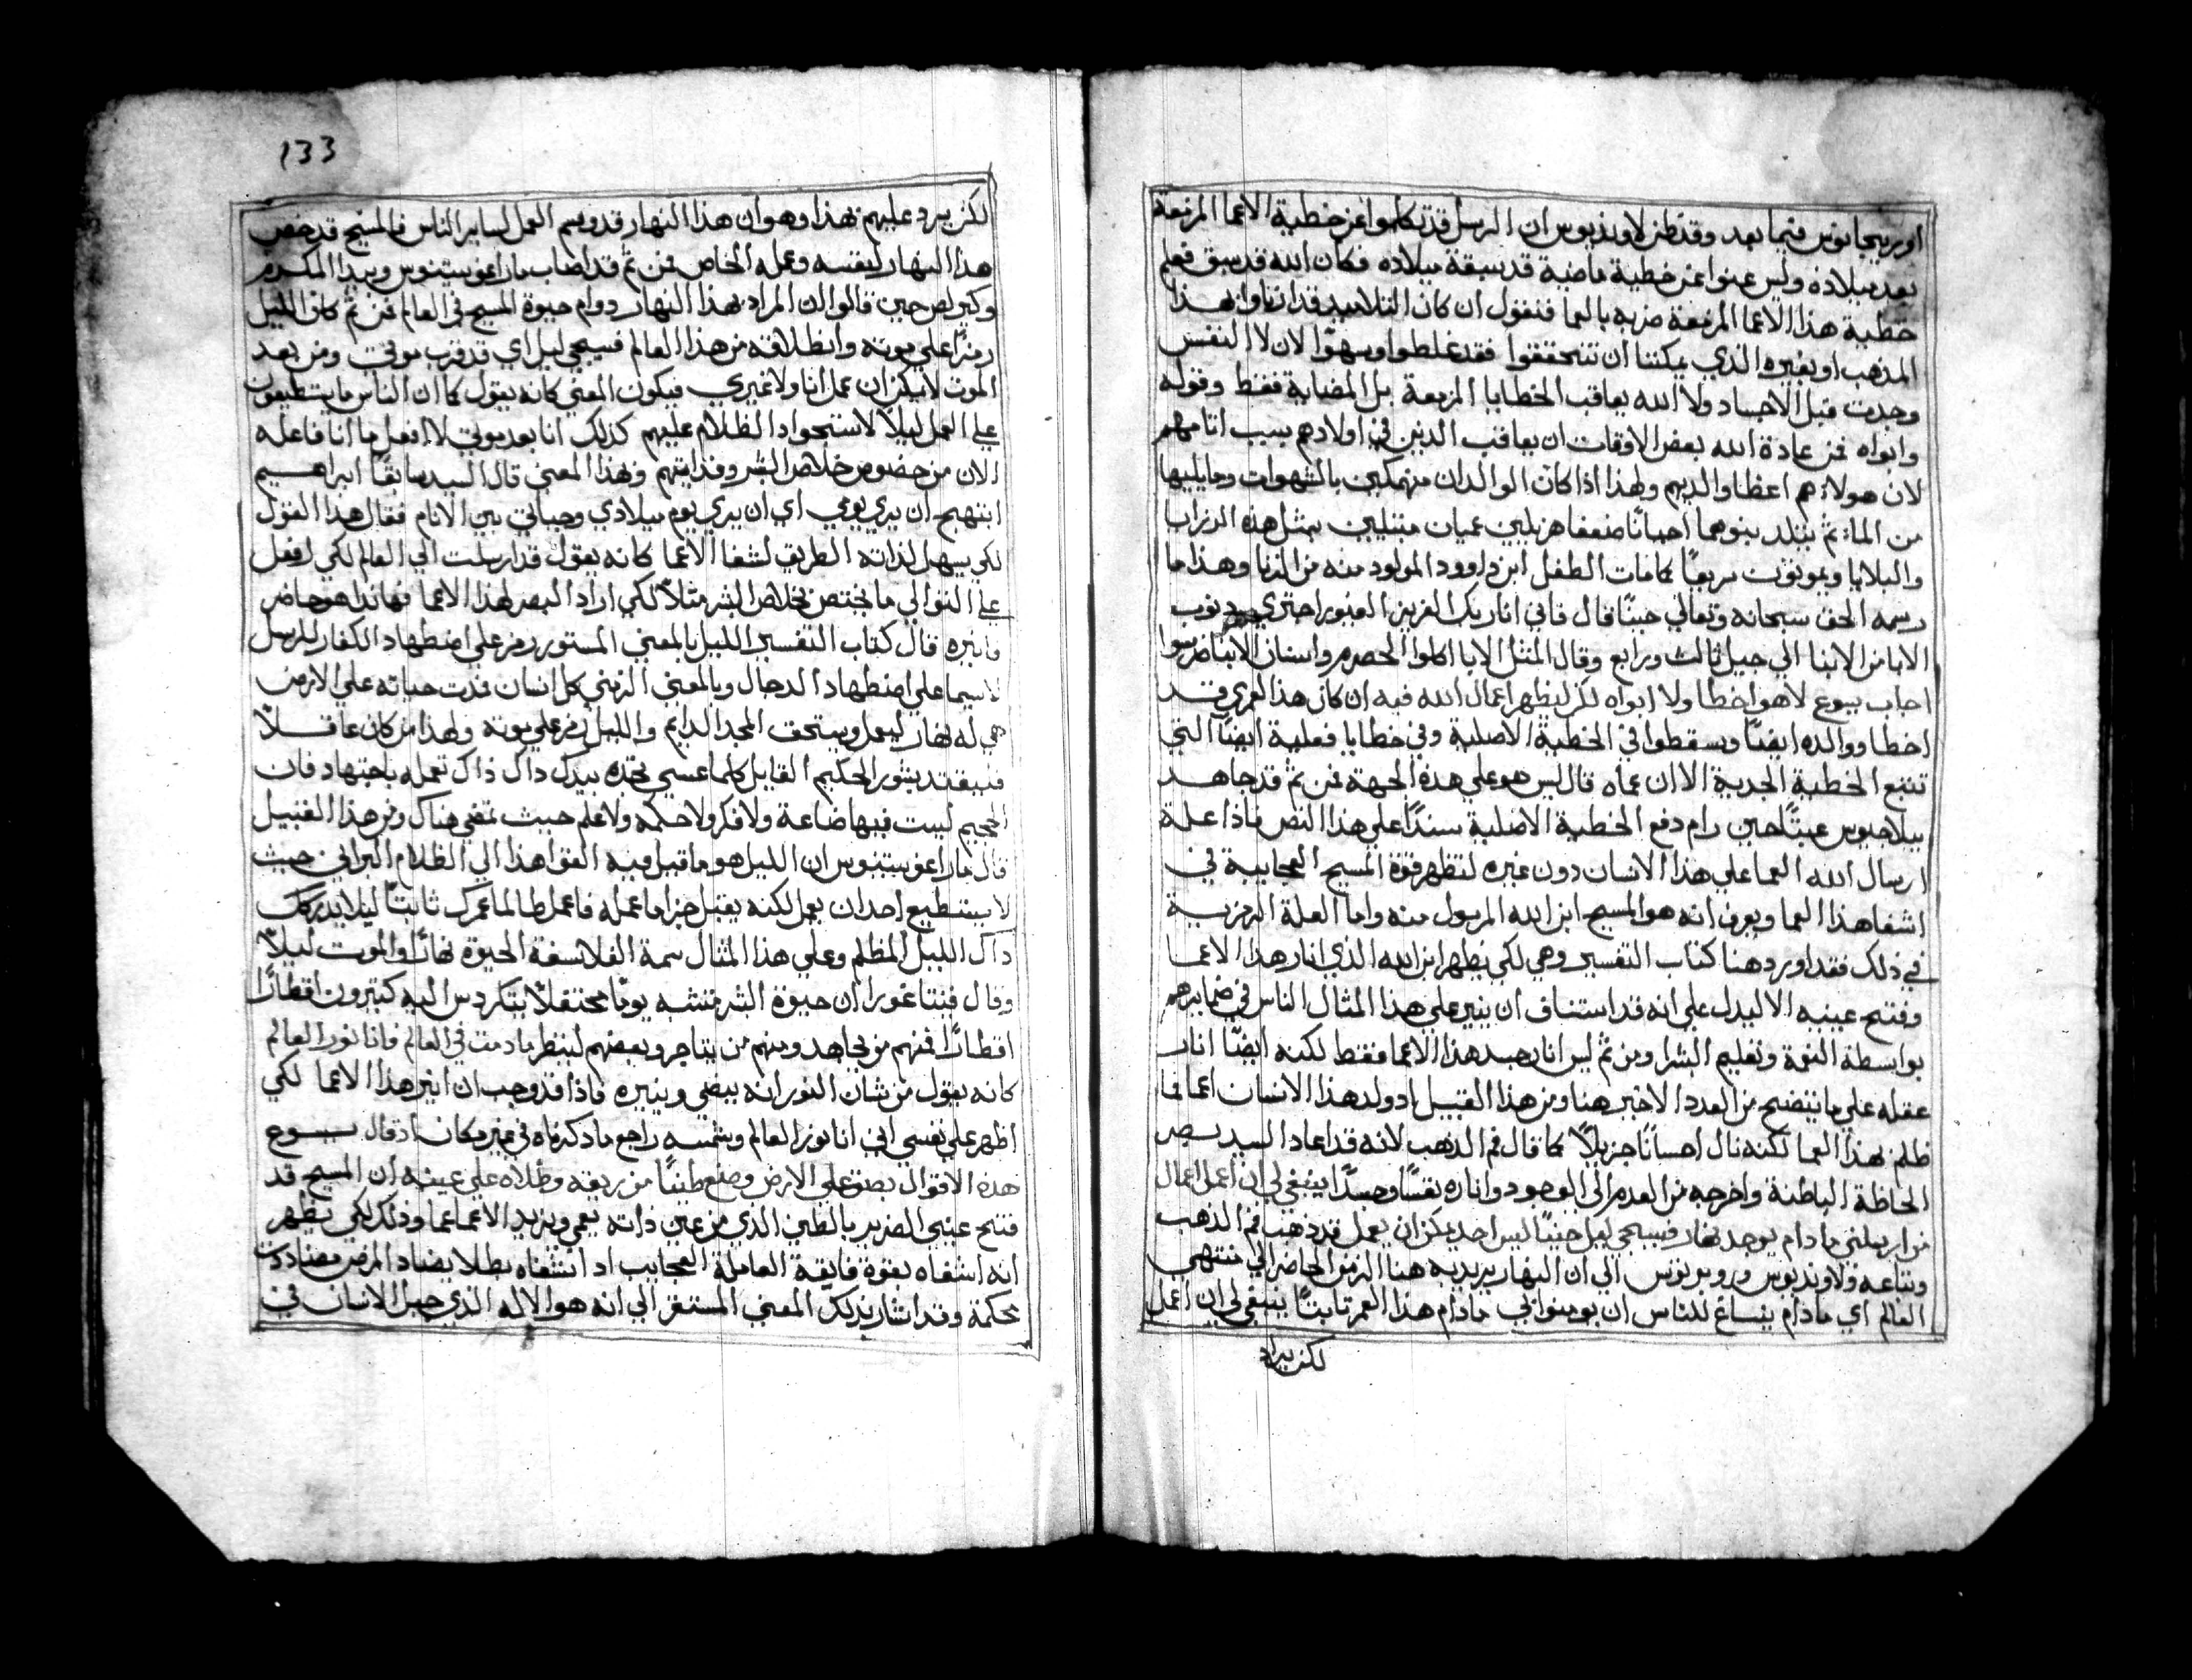 اوريجانوس فيما بعد وقد ظن لاونديوس ان الرسل قد تكلموا عن خطية الاعما المزمعة
بعد ميلاده وليس عنوا عن خطية ماضية قد سبقة ميلاده فكان الله قد سبق فعلم
خطية هذا الاعما المزمعة ضربه بالعما فنقول ان كان التلاميد قد ارتاوا بهذا
المذهب او بغيره الذي يمكننا ان نتحققوا فقد غلطوا وسهوا لان لا النفس
وجدت قبل الاجساد ولا الله يعاقب الخطايا المزمعة بل الماضية فقط وقوله
وابواه فمن عادة الله بعض الاوقات ان يعاقب الدنين في اولادهم بسبب اتامهم
لان هولاء هم اعظا والديهم ولهذا اذا كان الوالدان منهمكين بالشهوات وما يليها
من الماتم يتلد بنوهما احيانًا ضعفا هزيلين عميان مبتليين بمثل هذه الرزايا
والبلايا ويموتون سريعًا كما مات الطفل ابن داوود المولود منه من الزنا وهذا ما
رسمه الحق سبحانه وتعالي حينًا قال فاني انا ربك العزيز الغيور اجتزي دنوب
الابا من الابنا الي جيل ثالث ورابع وقال المثل الابا اكلوا الحصرم واسنان الابنا ضرسوا
اجاب يسوع لا هو اخطا ولا ابواه لكن ليظهر اعمال الله فيه ان كان هذا لعمري قد
اخطا ووالده ايضًا وسقطوا في الخطية الاصلية وفي خطايا فعلية ايضًا التي
تتبع الخطية الجدية الا ان عماه قال ليس هو علي هذه الجهة فمن تم قد جاهد
بيلاجيوس عبثًا حين رام دفع الخطية الاصلية سندًا علي هذا النص فاذا علة
ارسال الله العما علي هذا الانسان دون غيره لتظهر قوة المسيح العجايبية في
اشفا هذا العما ويعرف انه هو المسيح ابن الله المرسول منه واما العلة الرمزية
في ذلك فقد اوردها هنا كتاب التفسير وهي لكي يظهر ابن الله الذي انار هذا الاعما
وفتح عينيه الا ليدل علي انه قد استناف ان ينير علي هذا المثال الناس في ضمايرهم
بواسطة النعمة وتعليم البشرا ومن تم ليس انار جسد هذا الاعما فقط لكنه ايضًا انار
عقله علي ما يتضح من العدد الاخير هنا ومن هذا القبيل اد ولد هذا الانسان اعما فما
ظلم بهذا العما لكنه نال احسانًا جزيلاً كما قال فم الدهب لانه قد اعاد السيد بصر
الحاظه الباطنة واخرجه من العدم الي الوجود واناره نفسًا وجسدًا ينبغي لي ان اعمل اعمال
من ارسلني ما دام يوجد نهار فسيجي ليل حينًا ليس احد يمكن ان يعمل قد ذهب فم الدهب
وتباعه ولاونديوس وروبرتوس الي ان النهار يريد به هنا الزمن الحاضر الي منتهي
العالم اي ما دام ينساغ للناس ان يومنوا بي ما دام هذا العمر تابتًا ينبغي لي ان اعمل
لكن يراد
133
لكن يرد عليهم بهذا وهو ان هذا النهار قد وسم العمل لساير الناس فالمسيح قد خص
هذا النهار لنفسه وعمله الخاص فمن تم قد اصاب ماراغوستينوس وبيدا المكرم
وكيرلص حين قالوا ان المراد بهذا النهار دوام حيوة المسيح في العالم فمن تم كان الليل
رمزًا علي موته وانطلاقه من هذا العالم فسيجي ليل اي قد قرب موتي ومن بعد
الموت لا يمكن ان عمل انا ولا غيري فيكون المعني كانه يقول كما ان الناس ما يستطيعون
علي العمل ليلاً لاستحواد الظلام عليهم كذلك انا بعد موتي لا افعل ما انا فاعله
الان من خصوص خلاص البشر وفدايتهم وبهذا المعني قال السيد سابقًا ابراهيم
ابتهج ان يري يومي اي ان يري يوم ميلادي وحياتي بين الانام فقال هذا القول
لكي يسهل لذاته الطريق لشفا الاعما كانه يقول قد ارسلت الي العالم لكي افعل
علي التوالي ما يختص بخلاص البشر مثلاً لكي ازاد البصر لهذا الاعما فهاندا هوحاضر
فانيره قال كتاب التفسير الليل بالمعني المستور رمز علي اضطهاد الكفار للرسل
لاسيما علي اضطهاد الدجال وبالمعني الزمني كل انسان قدت حياته علي الارض
هي له نهار ليعمل ويستحق المجد الدايم والليل رمز علي موته ولهذا من كان عاقلاً
فليقتد بشور الحكيم القايل كلما عسي تجده بيدك داك ذاك تعمله باجتهاد فان
الجحيم ليست فيها صناعة ولا فكر ولا حكمه ولا علم حيث تمضي هناك ومن هذا القبيل
قال ماراغوستينوس ان الليل هو ما قيل فيه القوا هذا الي الظلام البراني حيث
لا يستطيع احد ان يعمل لكنه يقبل جزا ما عمله فاعمل طالما عمرك ثابتًا ليلا يدركك
داك الليل المظلم وعلي هذا المثال سمة الفلاسفة الحيوة نهارًا والموت ليلاً
وقال فيتاغورا ان حيوة البشر تشبه يومًا محتفلاً يتكردس اليه كتيرون اقطارًا
اقطارًا فمنهم من يجاهد ومنهم من يتاجر وبعضهم لينظر ما دمت في العالم فانا نور العالم
كانه يقول من شان النور انه يبضي وينيره فاذا قد وجب ان انير هذا الاعما لكي
اظهر علي نفسي اني انا نور العالم وشمسه راجع ما دكرناه في غير مكان اد قال يسوع
هذه الاقوال بصق علي الارض وصنع طينًا من ريقه وطلاه علي عينيه ان المسيح قد
فتح عيني الضرير بالطين الذي من عين ذاته يعمي ويزيد الاعما عما وذلك لكي يظهر
انه اشفاه بقوة فايقة العاملة العجايب اد اشفاه بطلا يضاد المرض مضاددت
محكمة وقد اشار بذلك المعني المستقر الي انه هو الاله الذي جبل الانسان في